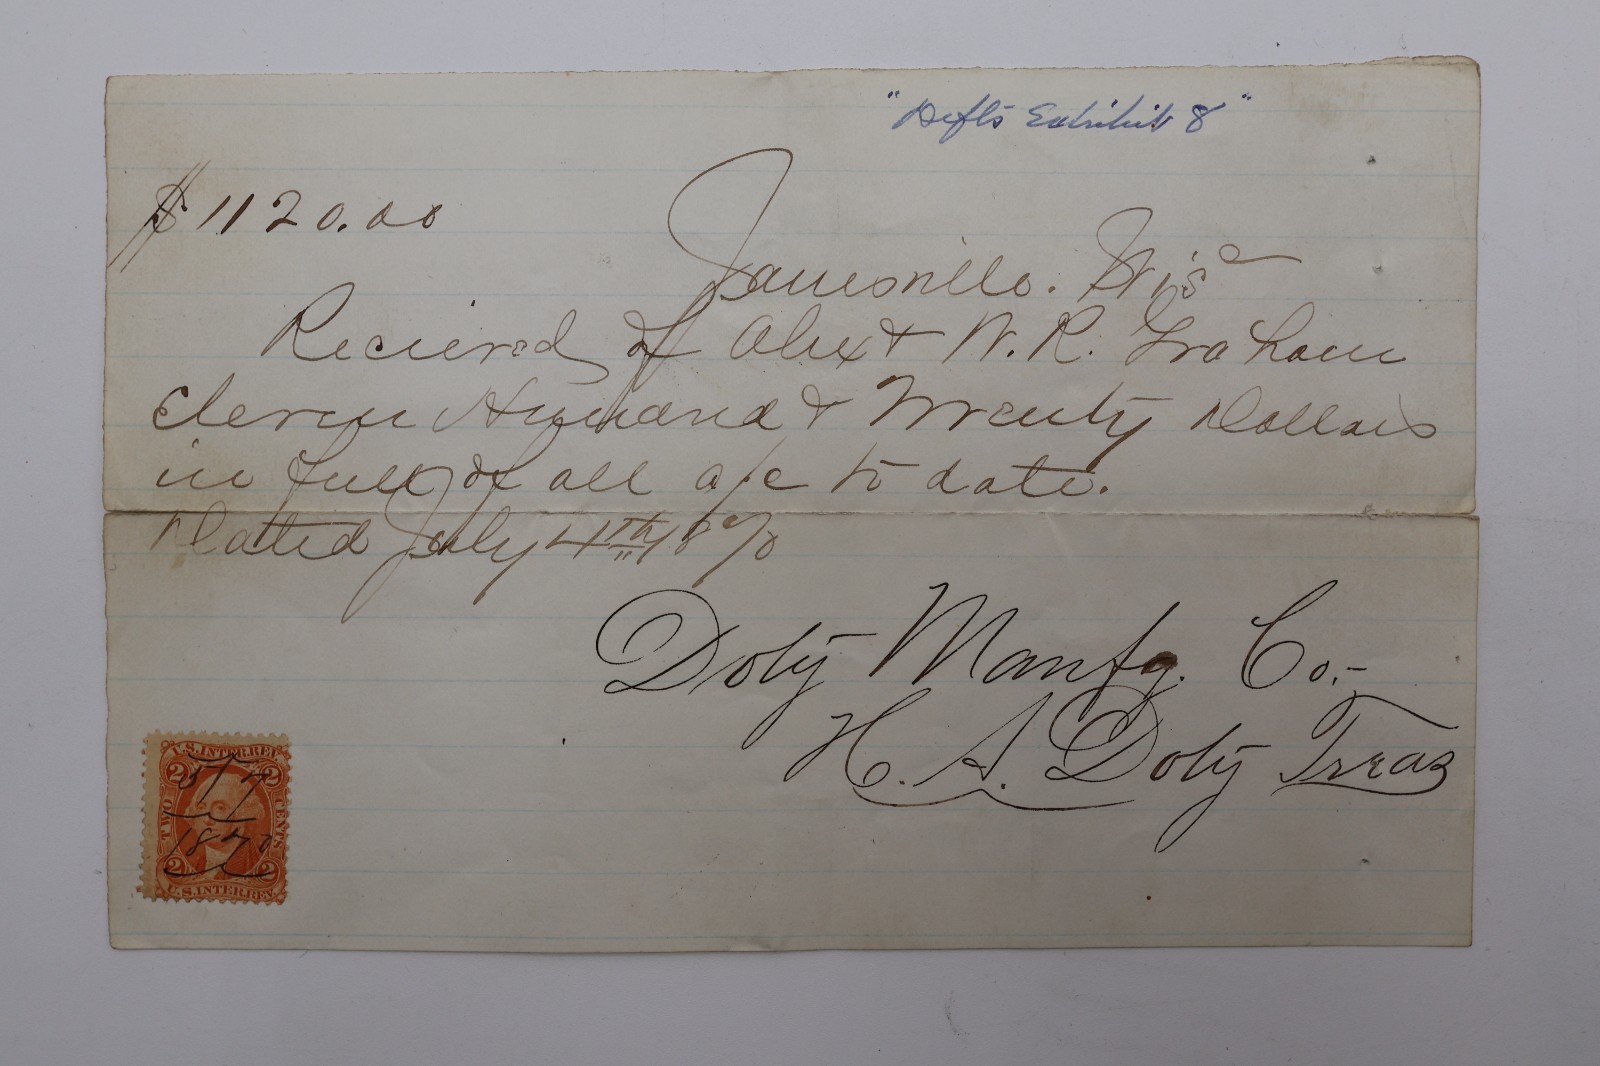 "Defts Exhibit 8"
$1120.00
Janesville. Wis
Recieved of Alex & W. R. Graham
Eleven Hundred & Twenty Dollars
in full of all a/c to date.
Dated July 4th 1870
Doty Manfg. Co.
H. A. Doty Treas
U.S. INTER. REV.
2 2
TWO CENTS
1870
2 2
U.S. INTER. REV.